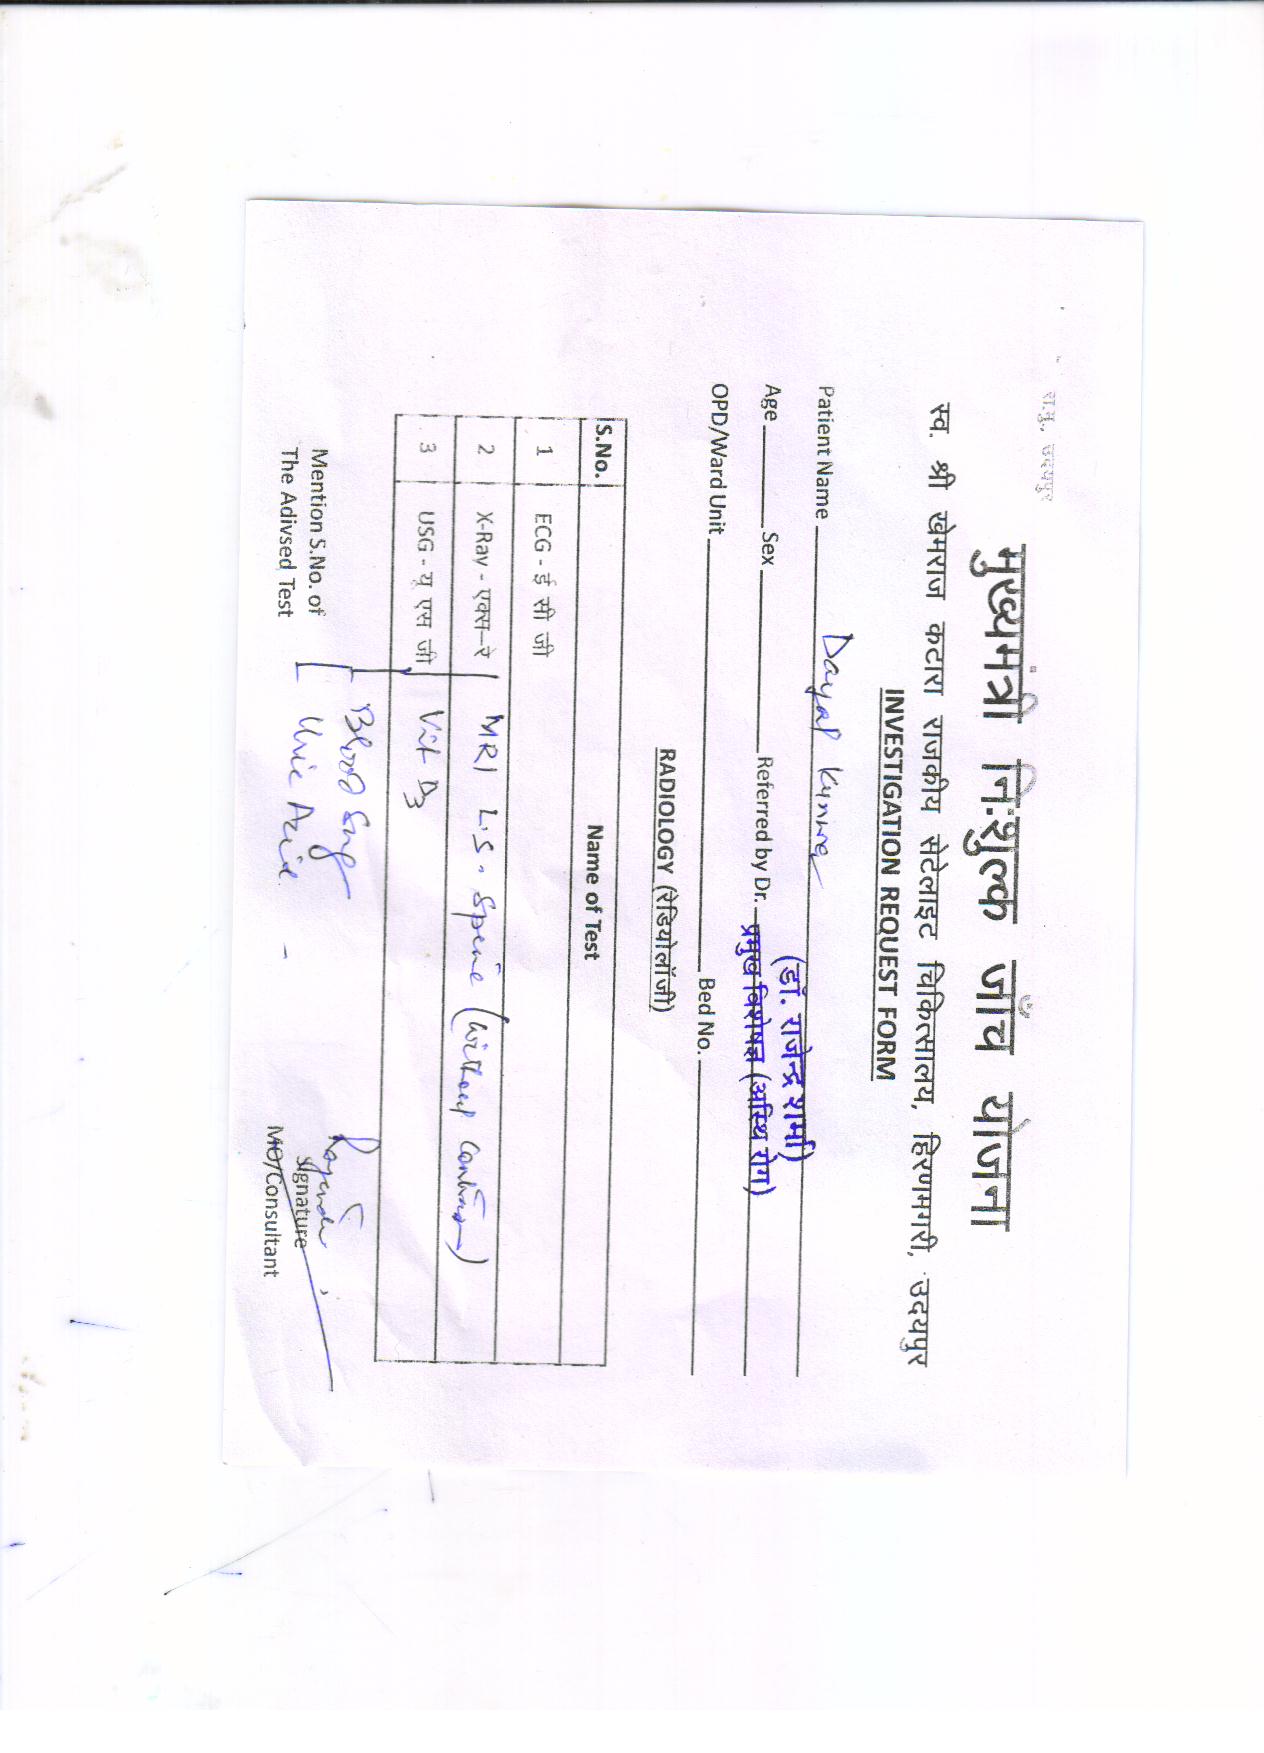 रा.मु. उदयपुर
मुख्यमंत्री नि:शुल्क जाँच योजना
स्व. श्री खेमराज कटारा राजकीय सेटेलाइट चिकित्सालय, हिरणमगरी, उदयपुर
INVESTIGATION REQUEST FORM
Patient Name Dayal Kunwar
(डॉ. राजेन्द्र शर्मा)
Age Sex Referred by Dr. प्रमुख विशेषज्ञ (अस्थि रोग)
OPD/Ward Unit Bed No.
RADIOLOGY (रेडियोलॉजी)
S.No. Name of Test
1 ECG - ई सी जी
2 X-Ray - एक्स–रे MRI L.S. Spine (without contrast)
3 USG - यू एस जी Vit D3
Blood Sug
Mention S.No. of
The Adivsed Test
Uric Acid
Signature
MO/Consultant